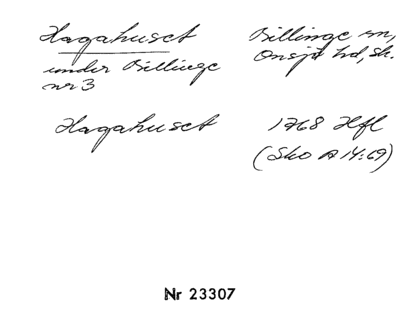 Hagahuset
under Billinge
nr 3
Billinge sn,
Onsjö hd, Sk.
Hagahuset
1768 Hfl
(Sko A 14:69)
Nr 23307